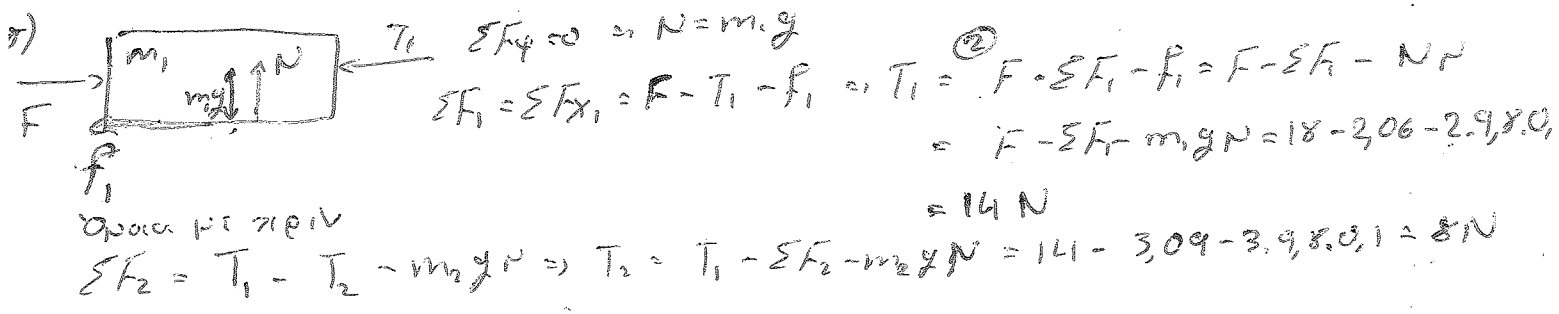 γ)
m₁ N T₁ ΣFψ=0 ⇒ N=m₁g
m₁g
F f₁ ΣF₁ = ΣFx₁ = F - T₁ - f₁ ⇒ T₁ = ② F - ΣF₁ - f₁ = F - ΣF₁ - Nμ
= F - ΣF₁ - m₁gμ = 18 - 2,06 - 2.9,8.0,
= 14 N
Όμοια με πριν
ΣF₂ = T₁ - T₂ - m₂gμ ⇒ T₂ = T₁ - ΣF₂ - m₂gμ = 14 - 3,09 - 3.9,8.0,1 = 8N